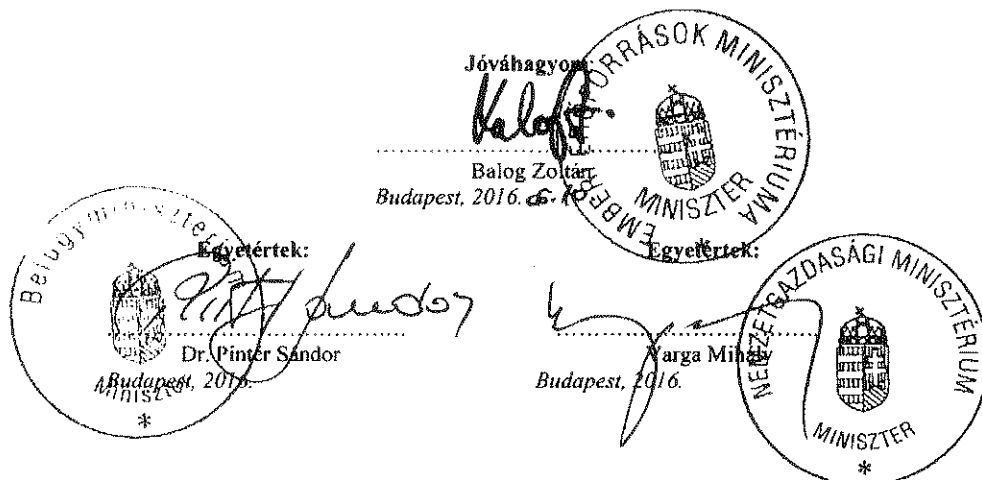 Jóváhagyom:
Balog Zoltán
Budapest, 2016.
EMBERI ERŐFORRÁSOK MINISZTÉRIUMA
MINISZTER
*
Egyetértek:
Dr. Pintér Sándor
Budapest, 2016.
Belügyminisztérium
Miniszter
*
Egyetértek:
Varga Mihály
Budapest, 2016.
NEMZETGAZDASÁGI MINISZTÉRIUM
MINISZTER
*